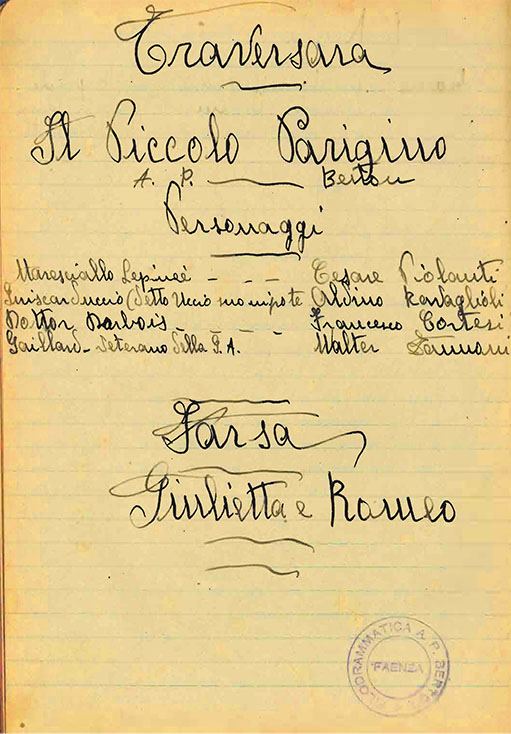 Traversara
Il Piccolo Parigino
A. P. Berton
Personaggi
Maresciallo Lepineé - - - Cesare Piolanti
(detto Uccio suo nipote Aldino
Dottor Barbois - - - - Francesco Cortesi
Gaillard - Veterano della G.A. Walter
Farsa
Giulietta e Romeo
FILODRAMMATICA A. P. BERTON
FAENZA